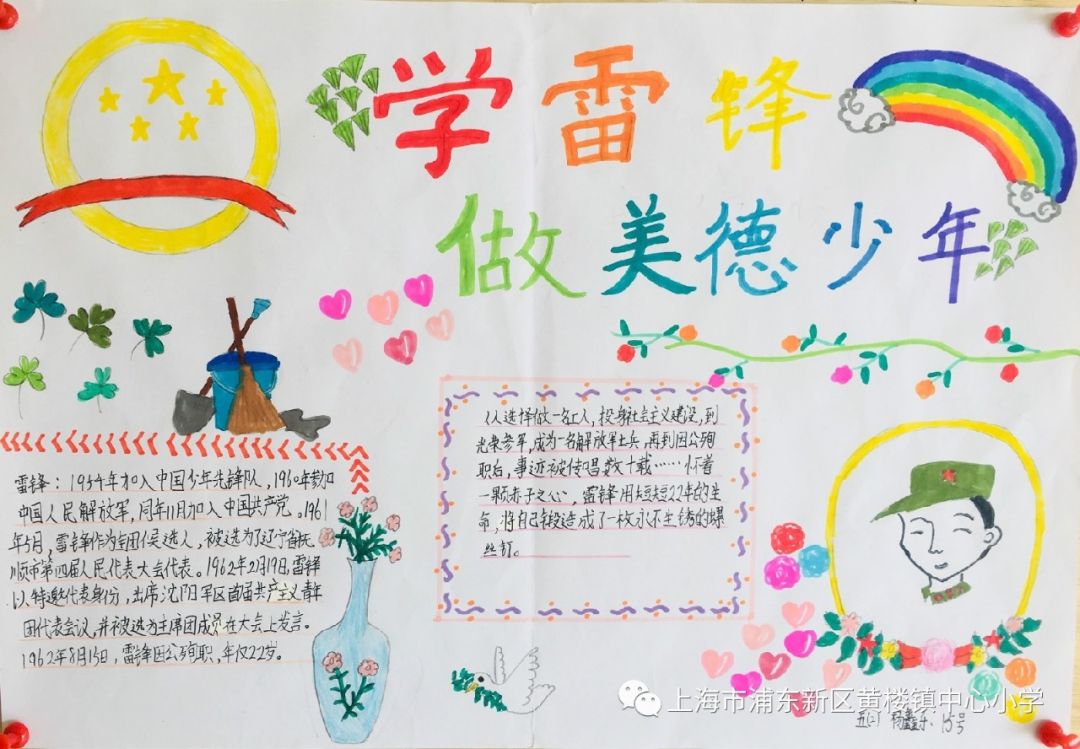 学雷锋
做美德少年
从选择做一名工人,投身社会主义建设,到
光荣参军,成为一名解放军士兵,再到因公殉
职后,事迹被传唱数十载……怀着
一颗赤子之心,雷锋用短短22年的生
命,将自己锻造成了一枚永不生锈的螺
丝钉。
雷锋:1954年加入中国少年先锋队,1960年参加
中国人民解放军,同年11月加入中国共产党。1961
年5月,雷锋作为全团候选人,被选为了辽宁省抚
顺市第四届人民代表大会代表。1962年2月19日,雷锋
以特邀代表身份,出席沈阳军区首届共产主义青年
团代表会议,并被选为主席团成员在大会上发言。
1962年8月15日,雷锋因公殉职,年仅22岁。
上海市浦东新区黄楼镇中心小学
五(2) 杨鑫乐 15号